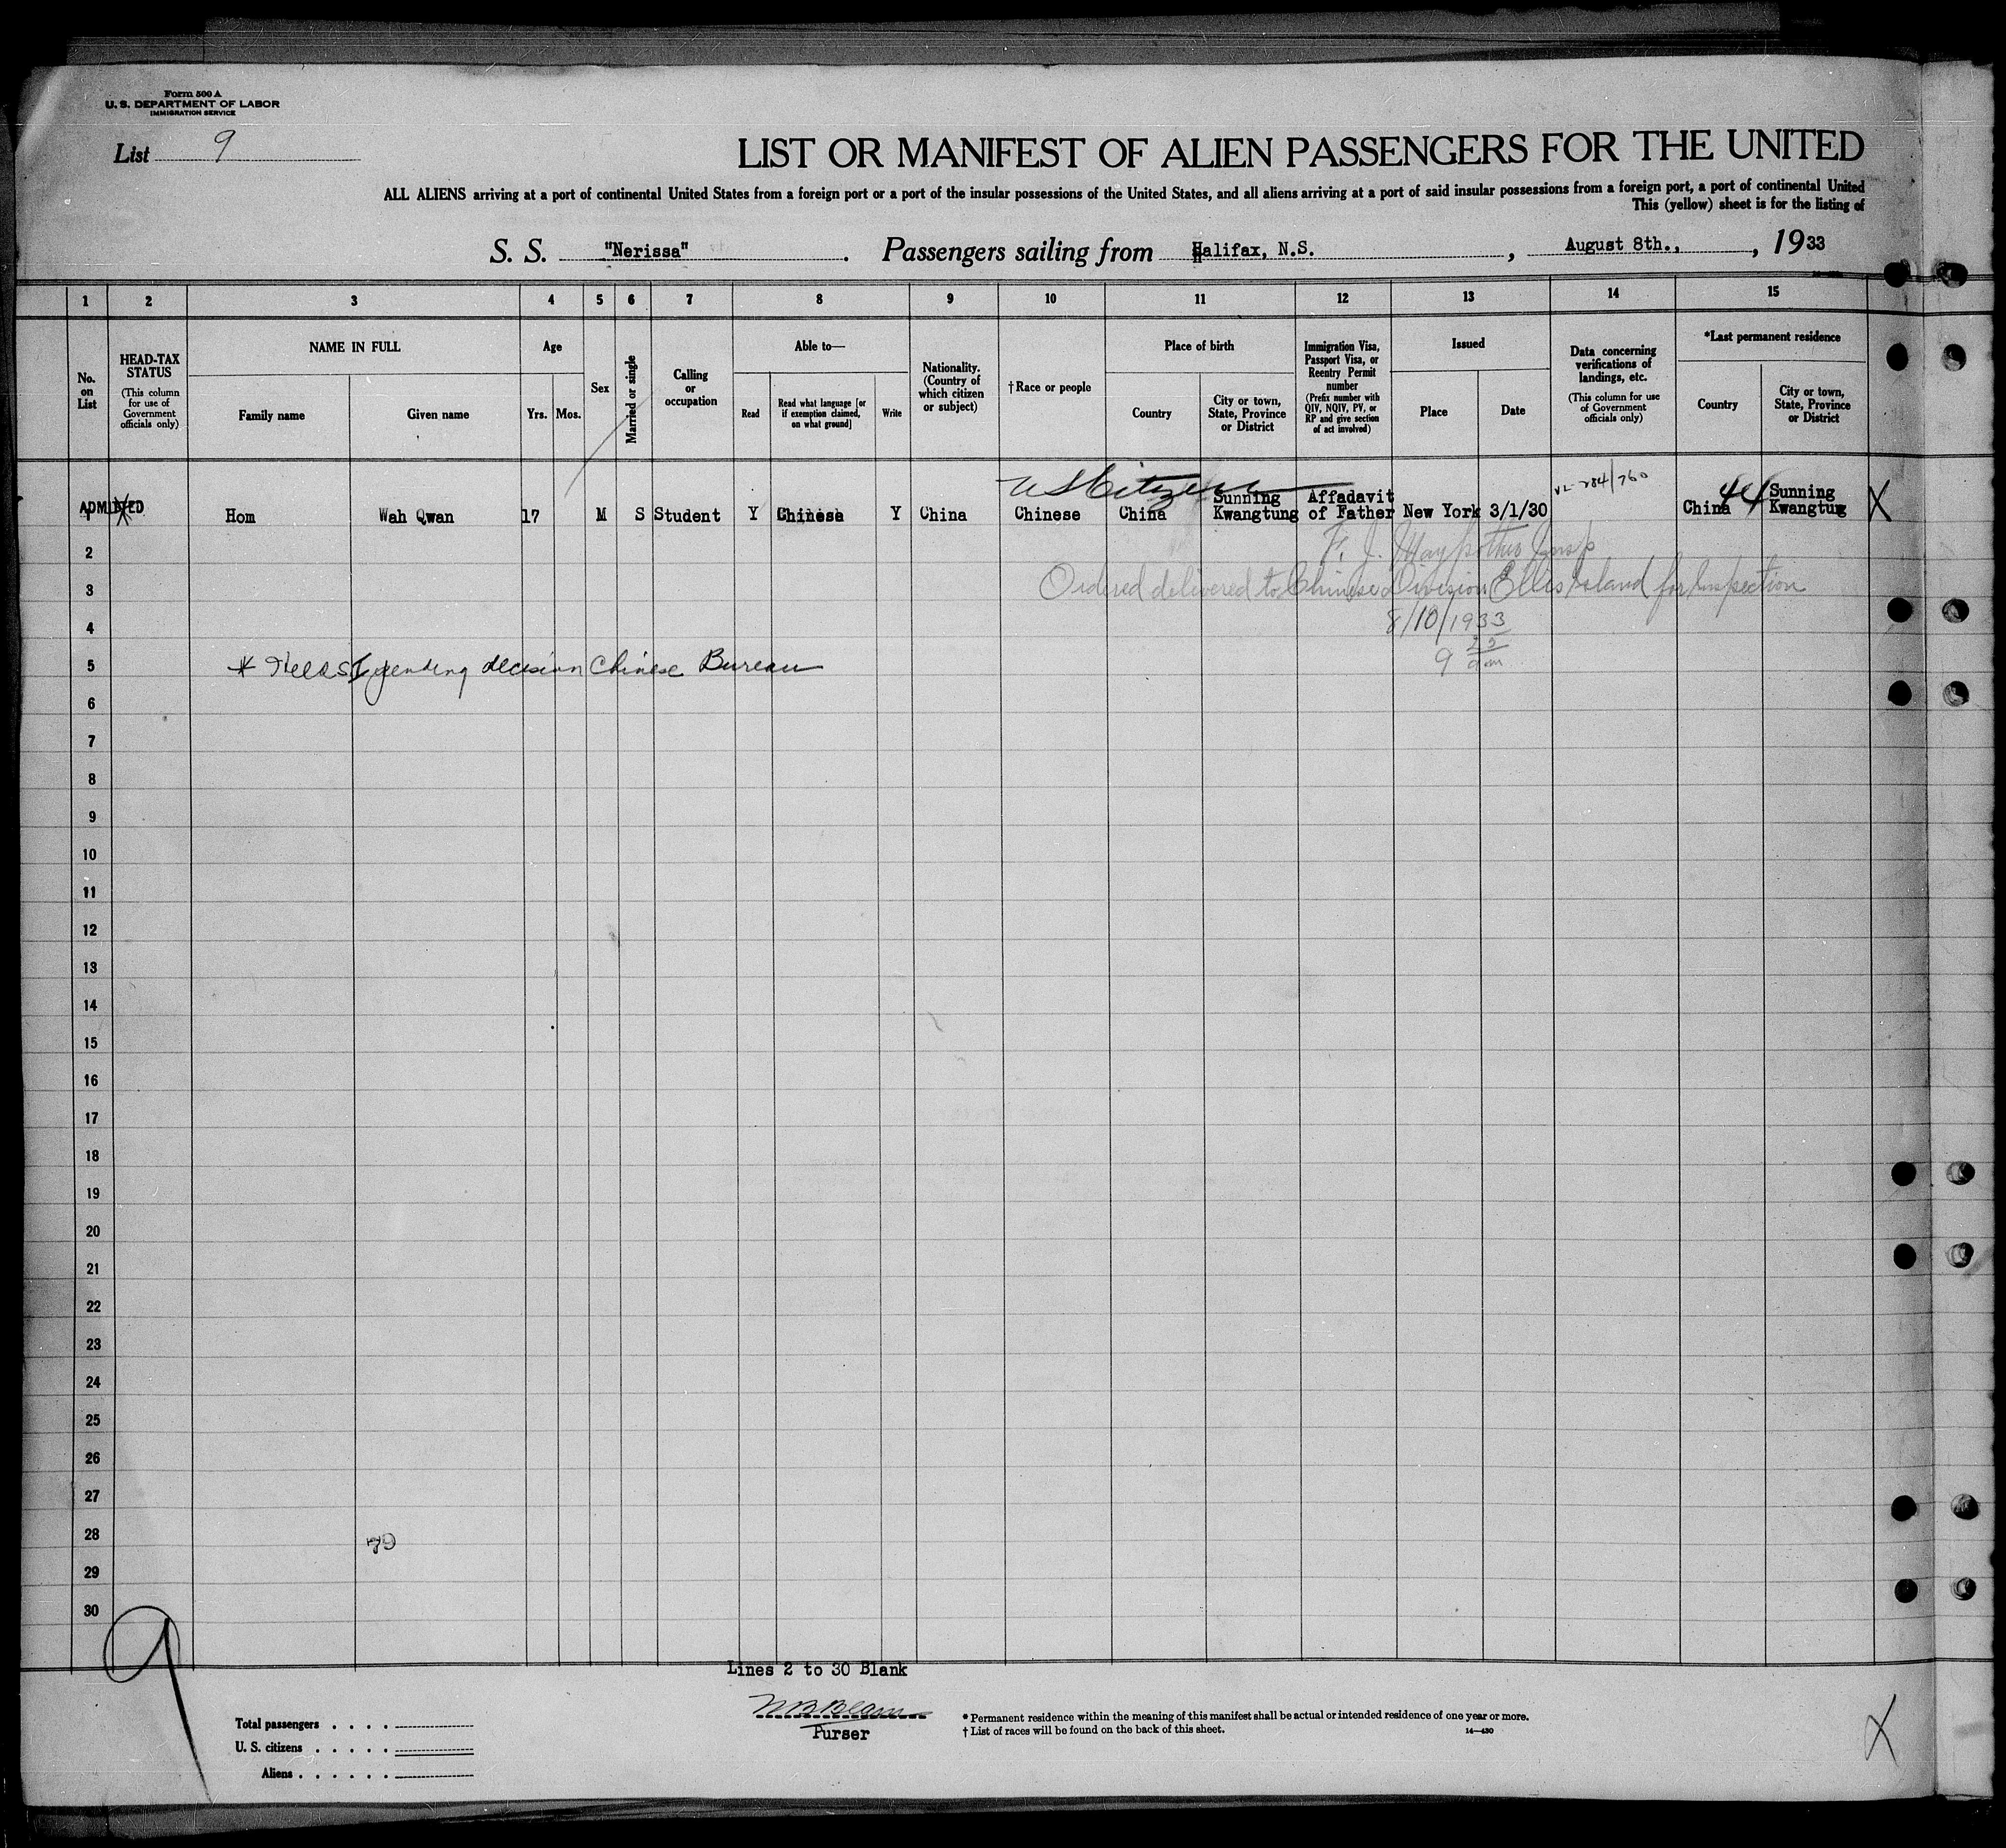 Form 500 A
U. S. DEPARTMENT OF LABOR
IMMIGRATION SERVICE
List 9
LIST OR MANIFEST OF ALIEN PASSENGERS FOR THE UNITED
ALL ALIENS arriving at a port of continental United States from a foreign port or a port of the insular possessions of the United States, and all aliens arriving at a port of said insular possessions from a foreign port, a port of continental United
This (yellow) sheet is for the listing of
S. S. "Nerissa". Passengers sailing from Halifax, N.S., August 8th., , 1933
1 2 3 4 5 6 7 8 9 10 11 12 13 14 15
No. on List
HEAD-TAX STATUS
(This column for use of Government officials only)
NAME IN FULL
Family name
Given name
Age
Yrs. Mos.
Sex
Married or single
Calling or occupation
Able to—
Read
Read what language [or if exemption claimed, on what ground]
Write
Nationality. (Country of which citizen or subject)
†Race or people
Place of birth
Country
City or town, State, Province or District
Immigration Visa, Passport Visa, or Reentry Permit number
(Prefix number with QIV, NQIV, PV, or RP and give section of act involved)
Issued
Place
Date
Data concerning verifications of landings, etc.
(This column for use of Government officials only)
*Last permanent residence
Country
City or town, State, Province or District
US Citizen
ADMITTED
1 Hom Wah Qwan 17 M S Student Y Chinese Y China Chinese China Sunning Kwangtung Affadavit of Father New York 3/1/30 China 44 Sunning Kwangtung X
2 F. J. Insp
3 Ordered delivered to Chinese Division Ellis Island for Inspection
4 8/10/1933
5 * pending decision Chinese Bureau 9 25 am
6
7
8
9
10
11
12
13
14
15
16
17
18
19
20
21
22
23
24
25
26
27
28 79
29
30
9
Lines 2 to 30 Blank
Purser
Total passengers
U. S. citizens
Aliens
* Permanent residence within the meaning of this manifest shall be actual or intended residence of one year or more.
† List of races will be found on the back of this sheet.
14—430
X